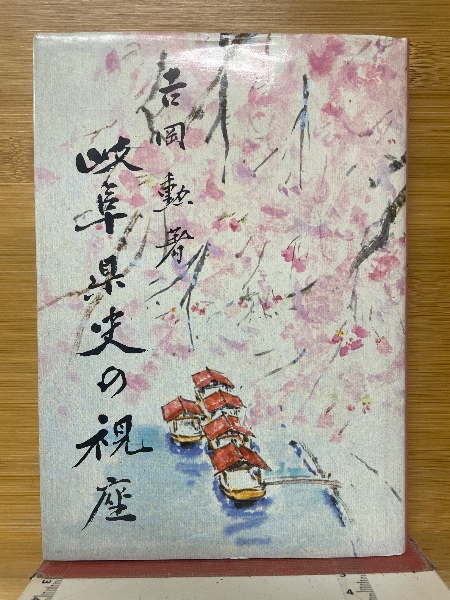 吉岡勲著
岐阜県史の視座